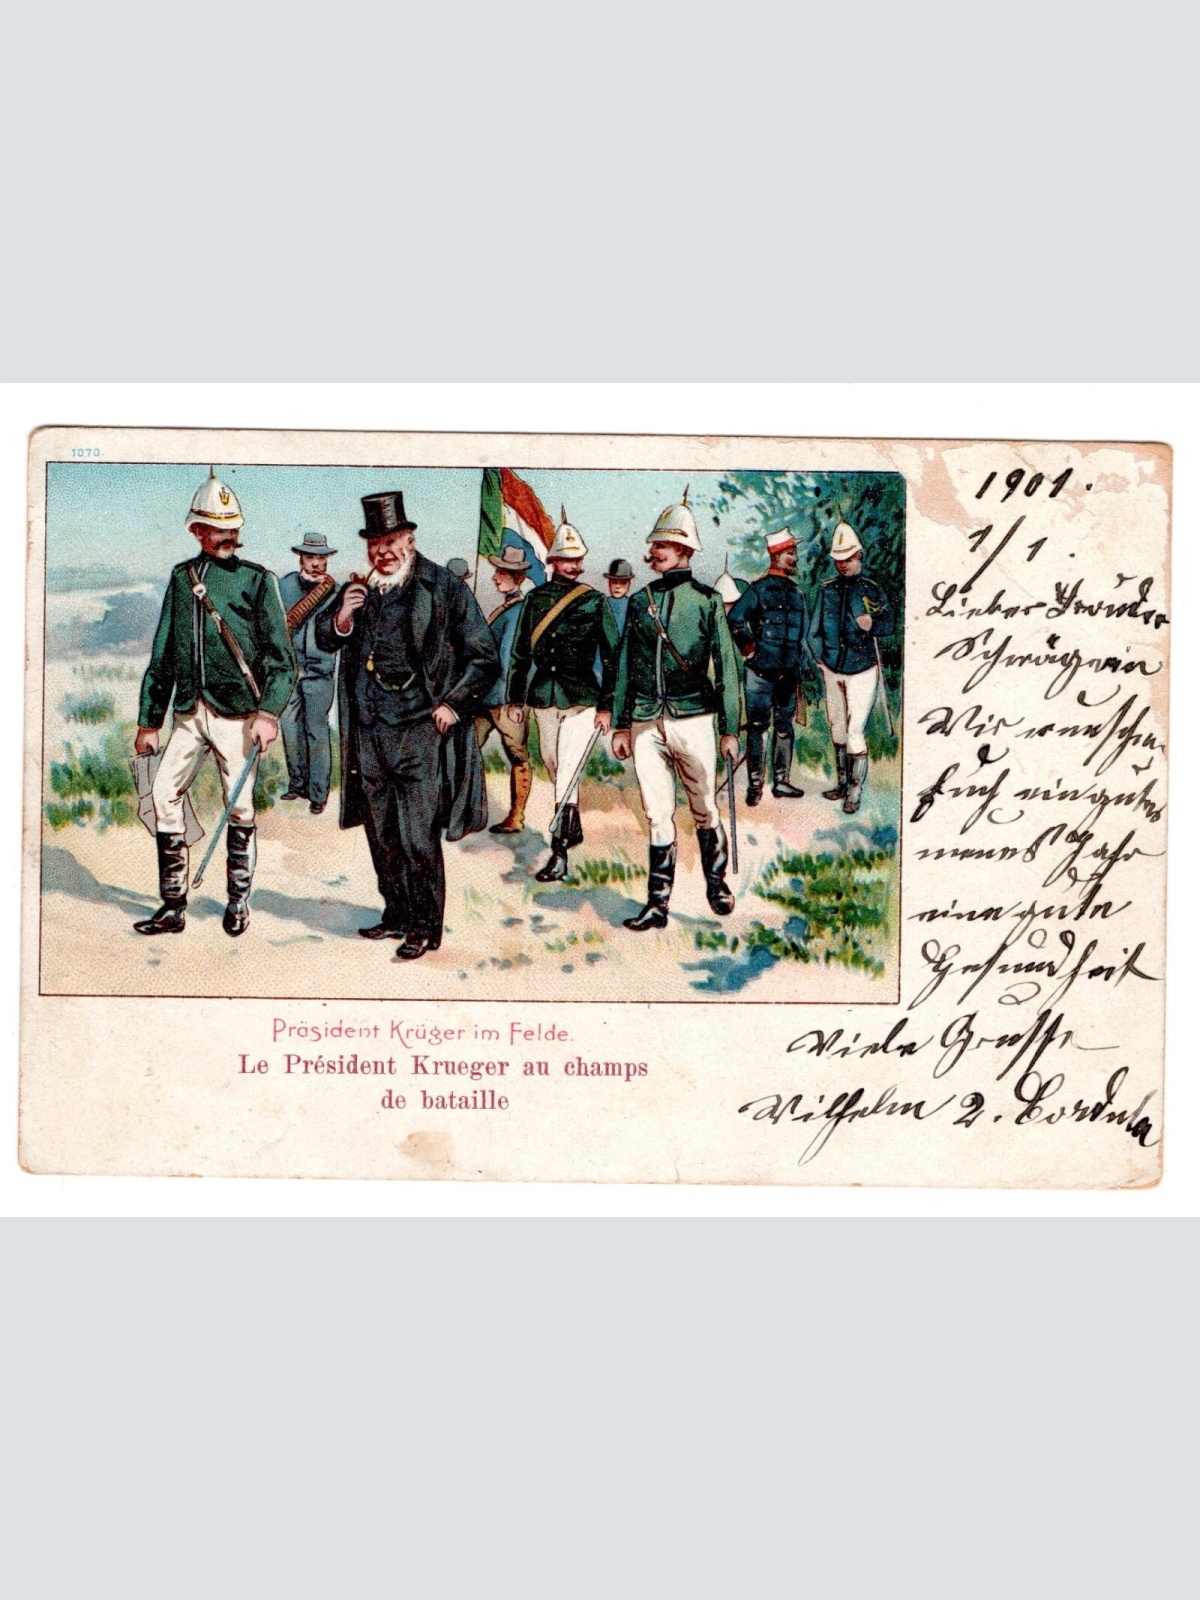 1070.
1901.
1/1.
Lieber Bruder
Schwägerin
Wir wunschen
Euch ein gutes
neues Jahr
eine gute
Gesundheit
Viele Grusse
Wilhelm 2. Cordula
Präsident Krüger im Felde.
Le Président Krueger au champs
de bataille